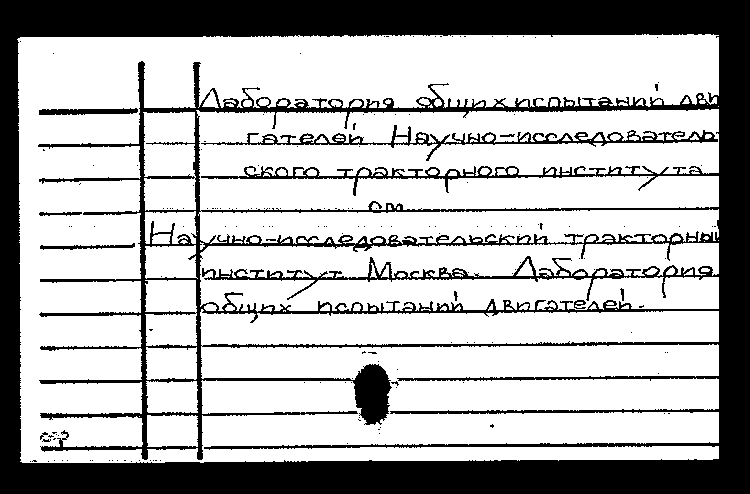 Лаборатория общих испытаний дви
гателей Научно-исследователь
ского тракторного института
см
Научно-исследовательский тракторный
институт Москва. Лаборатория
общих испытаний двигателей.